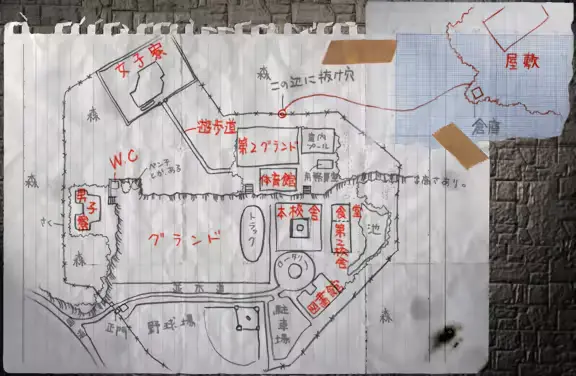 女子寮
森
この辺に抜け穴
屋敷
倉庫
森
遊歩道
第2グランド
室内
プール
W.C
ベンチ
とかある
体育館
森
男子
寮
さく
森
グランド
トラック
本校舎
食堂
第2校舎
池
高さあり。
ロータリー
図書館
並木道
正門
野球場
駐
車
場
森